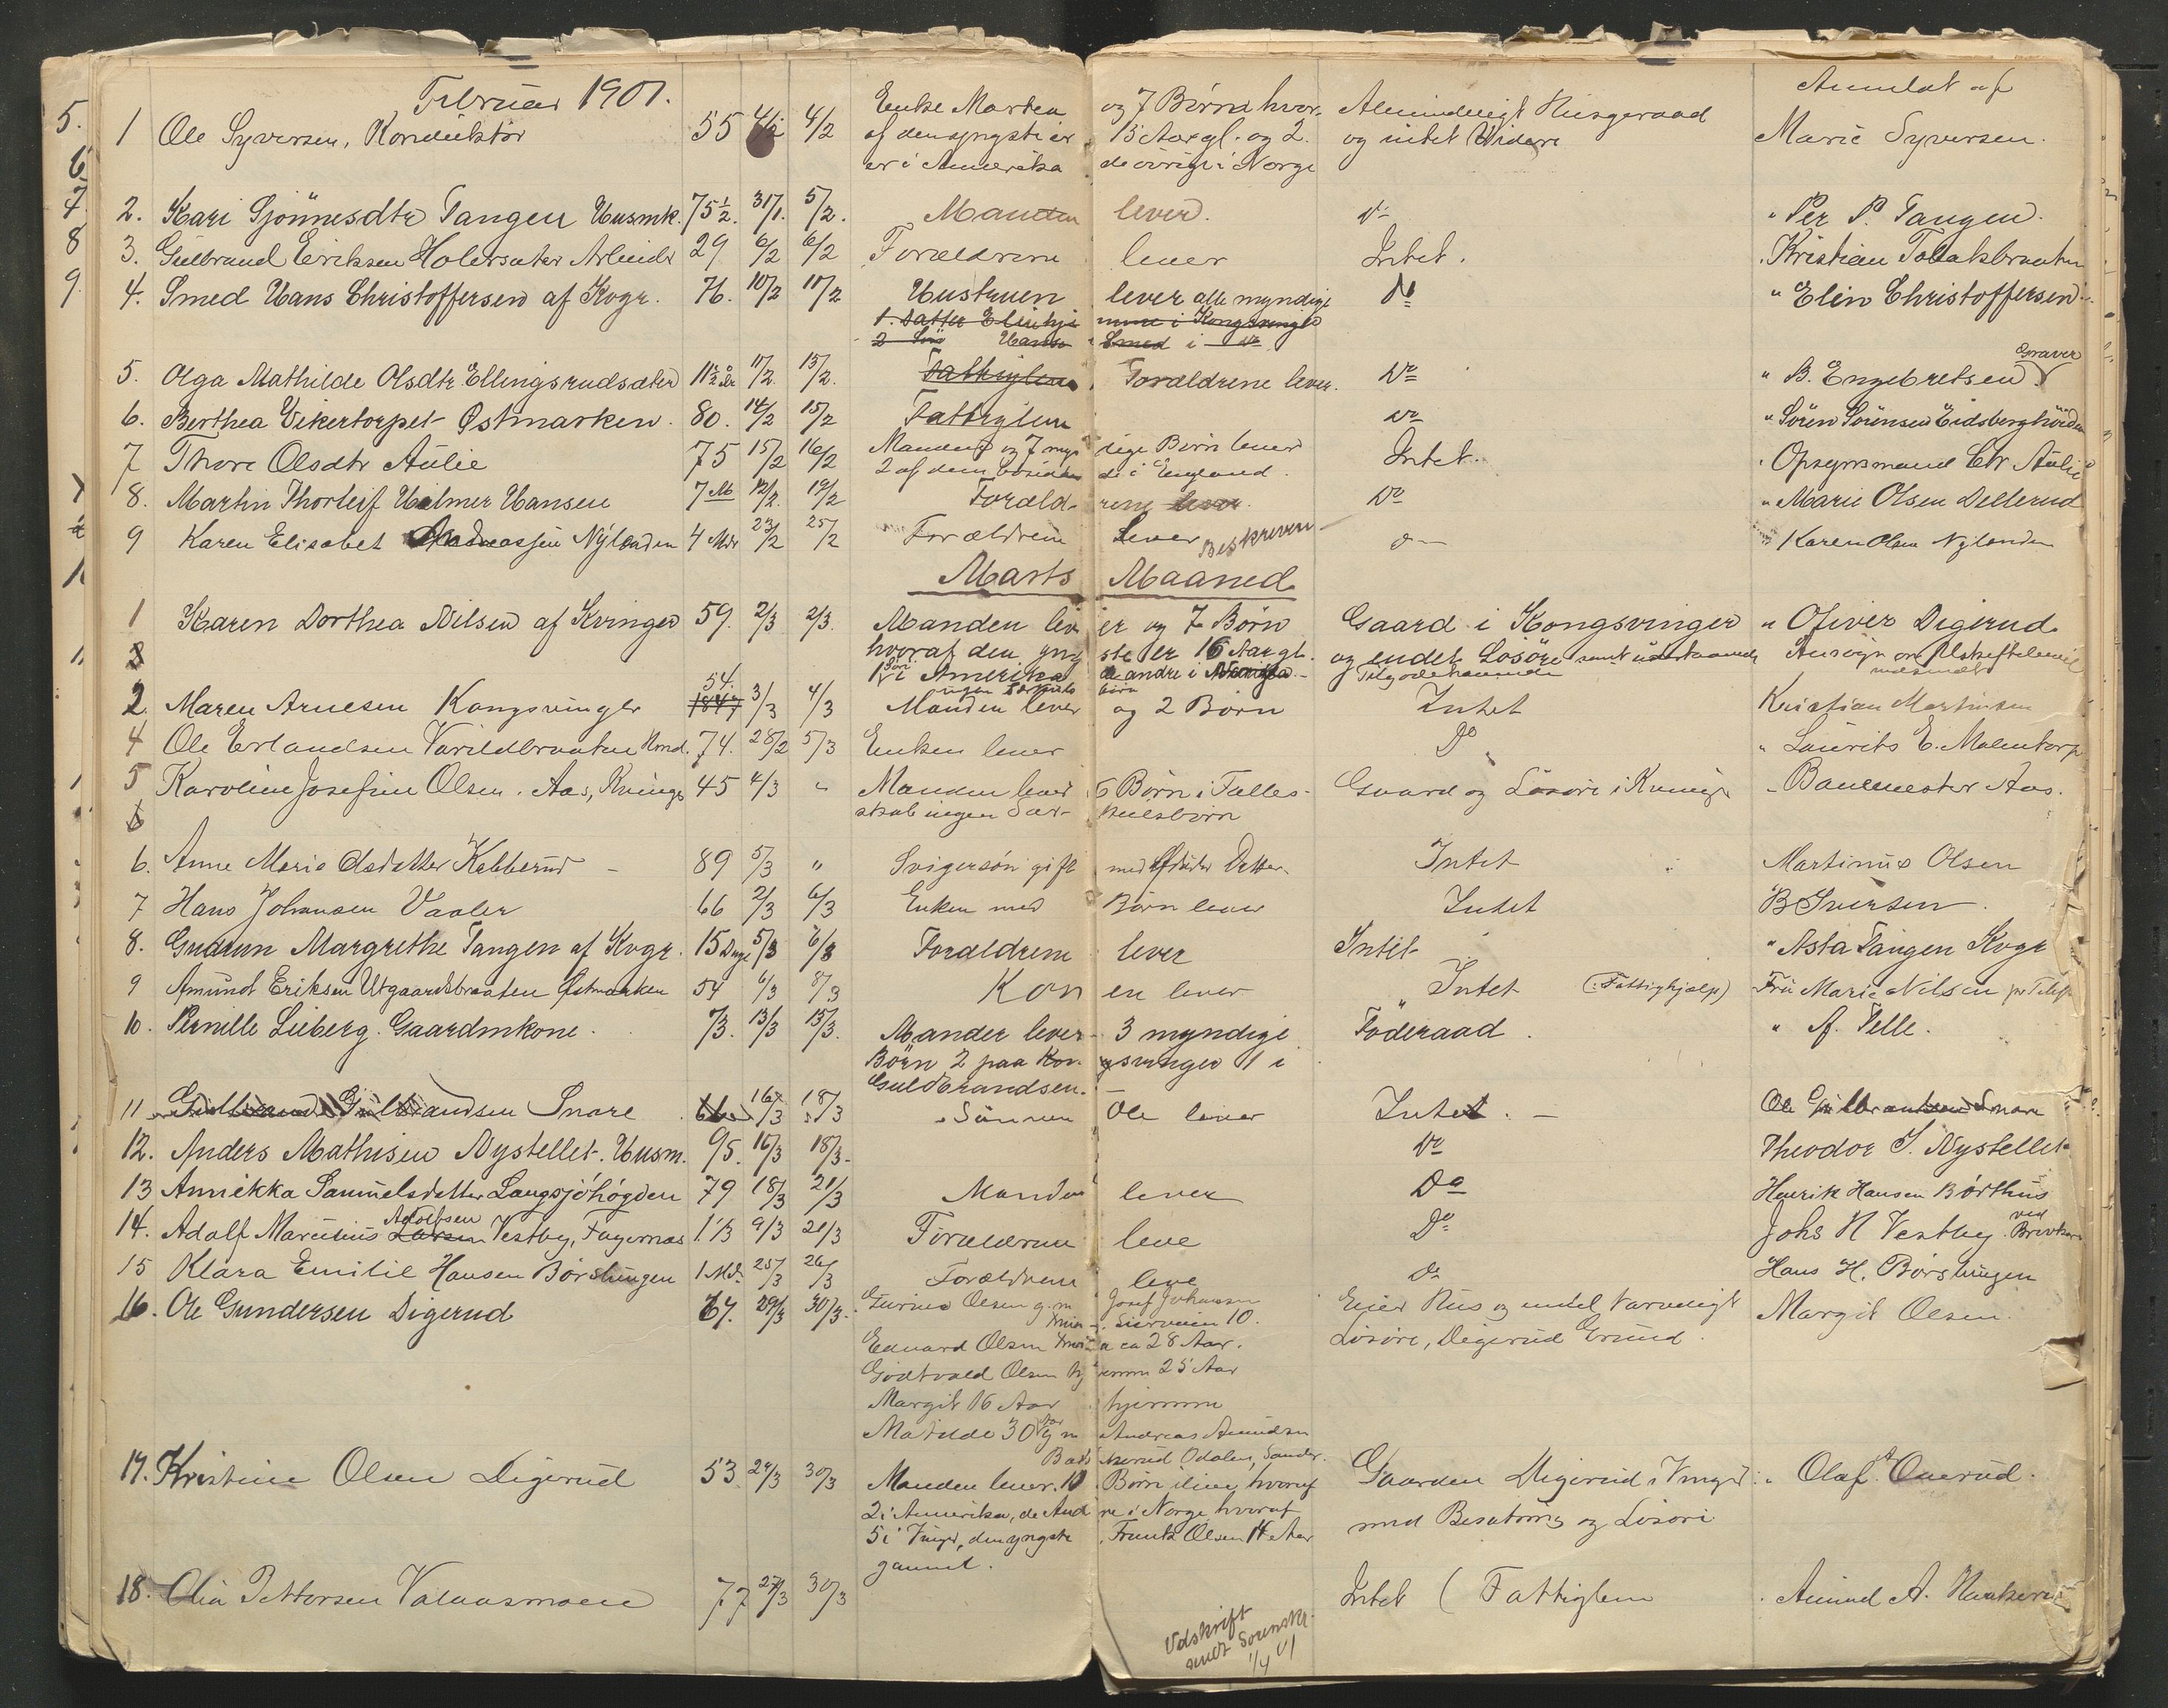 Februar 1901.
Anmeldt af
1 Ole Syversen, Konduktör 55 4/2 4/2 Enke Marthea og 7 Börn hvor- Almindeligt Husgeraad Marie Syversen.
af den yngste er 15 Aar gl. og 2 og intet Videre
er i Amerika de övrige i Norge
2. Kari Gjönnesdtr Tangen Husmk. 75½. 31/1. 5/2. Manden lever. Do " Per P. Tangen.
3. Gulbrand Eriksen Holersæter Arbeider 29 6/2 6/2 Forældrene lever Intet. Kristian
4. Smed Hans Christoffersen af Kvgr. 76. 10/2 11/2 Hustruen lever alle myndige Do " Elin Christoffersen
1. Datter Elin hjemme i Kongsvinger
2 Sön Hans Smed i do
Graver
5. Olga Mathilde Olsdtr Ellingsrudsæter 11½ Aar 11/2. 13/2. Fattiglem Forældrene lever. Do " B. Engebretsen
6. Berthea Vikertorpet Østmarken. 80. 14/2 15/2 Fattiglem Do " Sören Sörensen Eidsberghöiden
7 Thore Olsdtr Aulie 75 15/2 16/2 Manden og 7 myndige Börn lever Intet. Opsynsmand Chr Aulie
2 af dem bosiddende i England.
8. Martin Thorleif Hilmer Hansen 7 M 12/2. 19/2 Forældrene lever. Do " Marie Olsen Dellerud
9 Karen Elisabet Andreassen Nýlænden 4 Mdr 23/2 25/2 Forældrene Lever Beskreven do Karen Olsen Nylænden
Marts Maaned
1 Karen Dorthea Nilsen af Kvinger 59. 2/3 2/3. Manden lever og 7 Börn Gaard i Kongsvinger " Oliver Digerud
hvoraf den yngste er 16 Aar gl. og endel Losöre samt udestaaende
1 Sön i Amerika de andre i Norge Tilgodehavende
ingen Særkuldsbörn
2. Maren Arnesen Kongsvinger 54. 1847 3/3 4/3 Manden lever og 2 Börn Intet Kristian Martinsen
4 Ole Erlandsen Varildbraaten Hmd. 74. 28/2 5/3 Enken lever Do " Laurits E. Malmtorp
5 Karoline Josefine Olsen. Aas, Kvinger 45 4/3 " Manden lever 6 Börn i Fælles- Gaard og Lösöre i Kvinger Banemester Aas.
skab ingen Sær- kuldsbörn
6
6. Anne Marie Olsdatter Kabberud 89 5/3 " Svigersön gift med Afdödes Datter. Intet Martinus Olsen
7 Hans Johansen Vaaler 66 2/3 6/3 Enken med Börn lever Intet B Iversen.
8. Gudrun Margrethe Tangen af Kvgr. 15 Dage 5/3 6/3 Forældrene lever Intet " Asta Tangen Kvgr
9 Amund Eriksen Utgaardsbraaten Østmarken 54 6/3 8/3 Konen lever Intet (Fattighjælp) Fru Marie Nilsen pr Telef
10. Pernille Lieberg. Gaardmkone. 73. 13/3 15/3. Manden lever 3 myndige Föderaad. " A. Pelle.
Börn 2 paa Kongsvinger 1 i
Guldbrandsen.
11 Gulbrand Gulbrandsen Snare 16/3 18/3 Sönnen Ole lever Intet. Ole Gulbrandsen Snare
12. Anders Mathisen Nystellet. Husm. 95. 16/3 18/3. Do Theodor S. Nystellet
13 Annikka Samuelsdatter Langsjöhögden 79 18/3 21/3 Manden lever Do Henrik Hansen Börthus
14. Adolf Marcilius Larsen Adolfsen Vestby, Fagernæs 1½ 9/3 21/3 Forældrene leve Do Johs H Vestby. ved
15 Klara Emilie Hansen Börslungen 1 Md. 25/3 26/3 Forældrene leve Do Hans H. Börslungen
16. Ole Gundersen Digerud 67. 29/3 30/3. Gurine Olsen g. m Josef Johansen Eier Hus og endel tarveligt Margit Olsen.
Lösöre, Digerud Grund.
Edvard Olsen ca 28 Aar.
Godtvald Olsen hjemme 25 Aar
Margit 16 Aar hjemme
Matilde 30 Aar g m Andreas Amundsen
Odalen, Sander.
17. Kristine Olsen Digerud 53 24/3 30/3 Manden lever. 10 Börn i live, hvoraf Gaarden Digerud i Vinger " Olaf A Onerud.
2 i Amerika, de Andre i Norge hvoraf med Besætning og Lösöre
5 i Vinger, den yngste Frantz Olsen 14 Aar
gammel.
18. Olia Pettersen Valaasmoen 77 27/3 30/3 Intet (Fattiglem Amund A.
Udskrift
sendt Sorenskr.
1/4 01